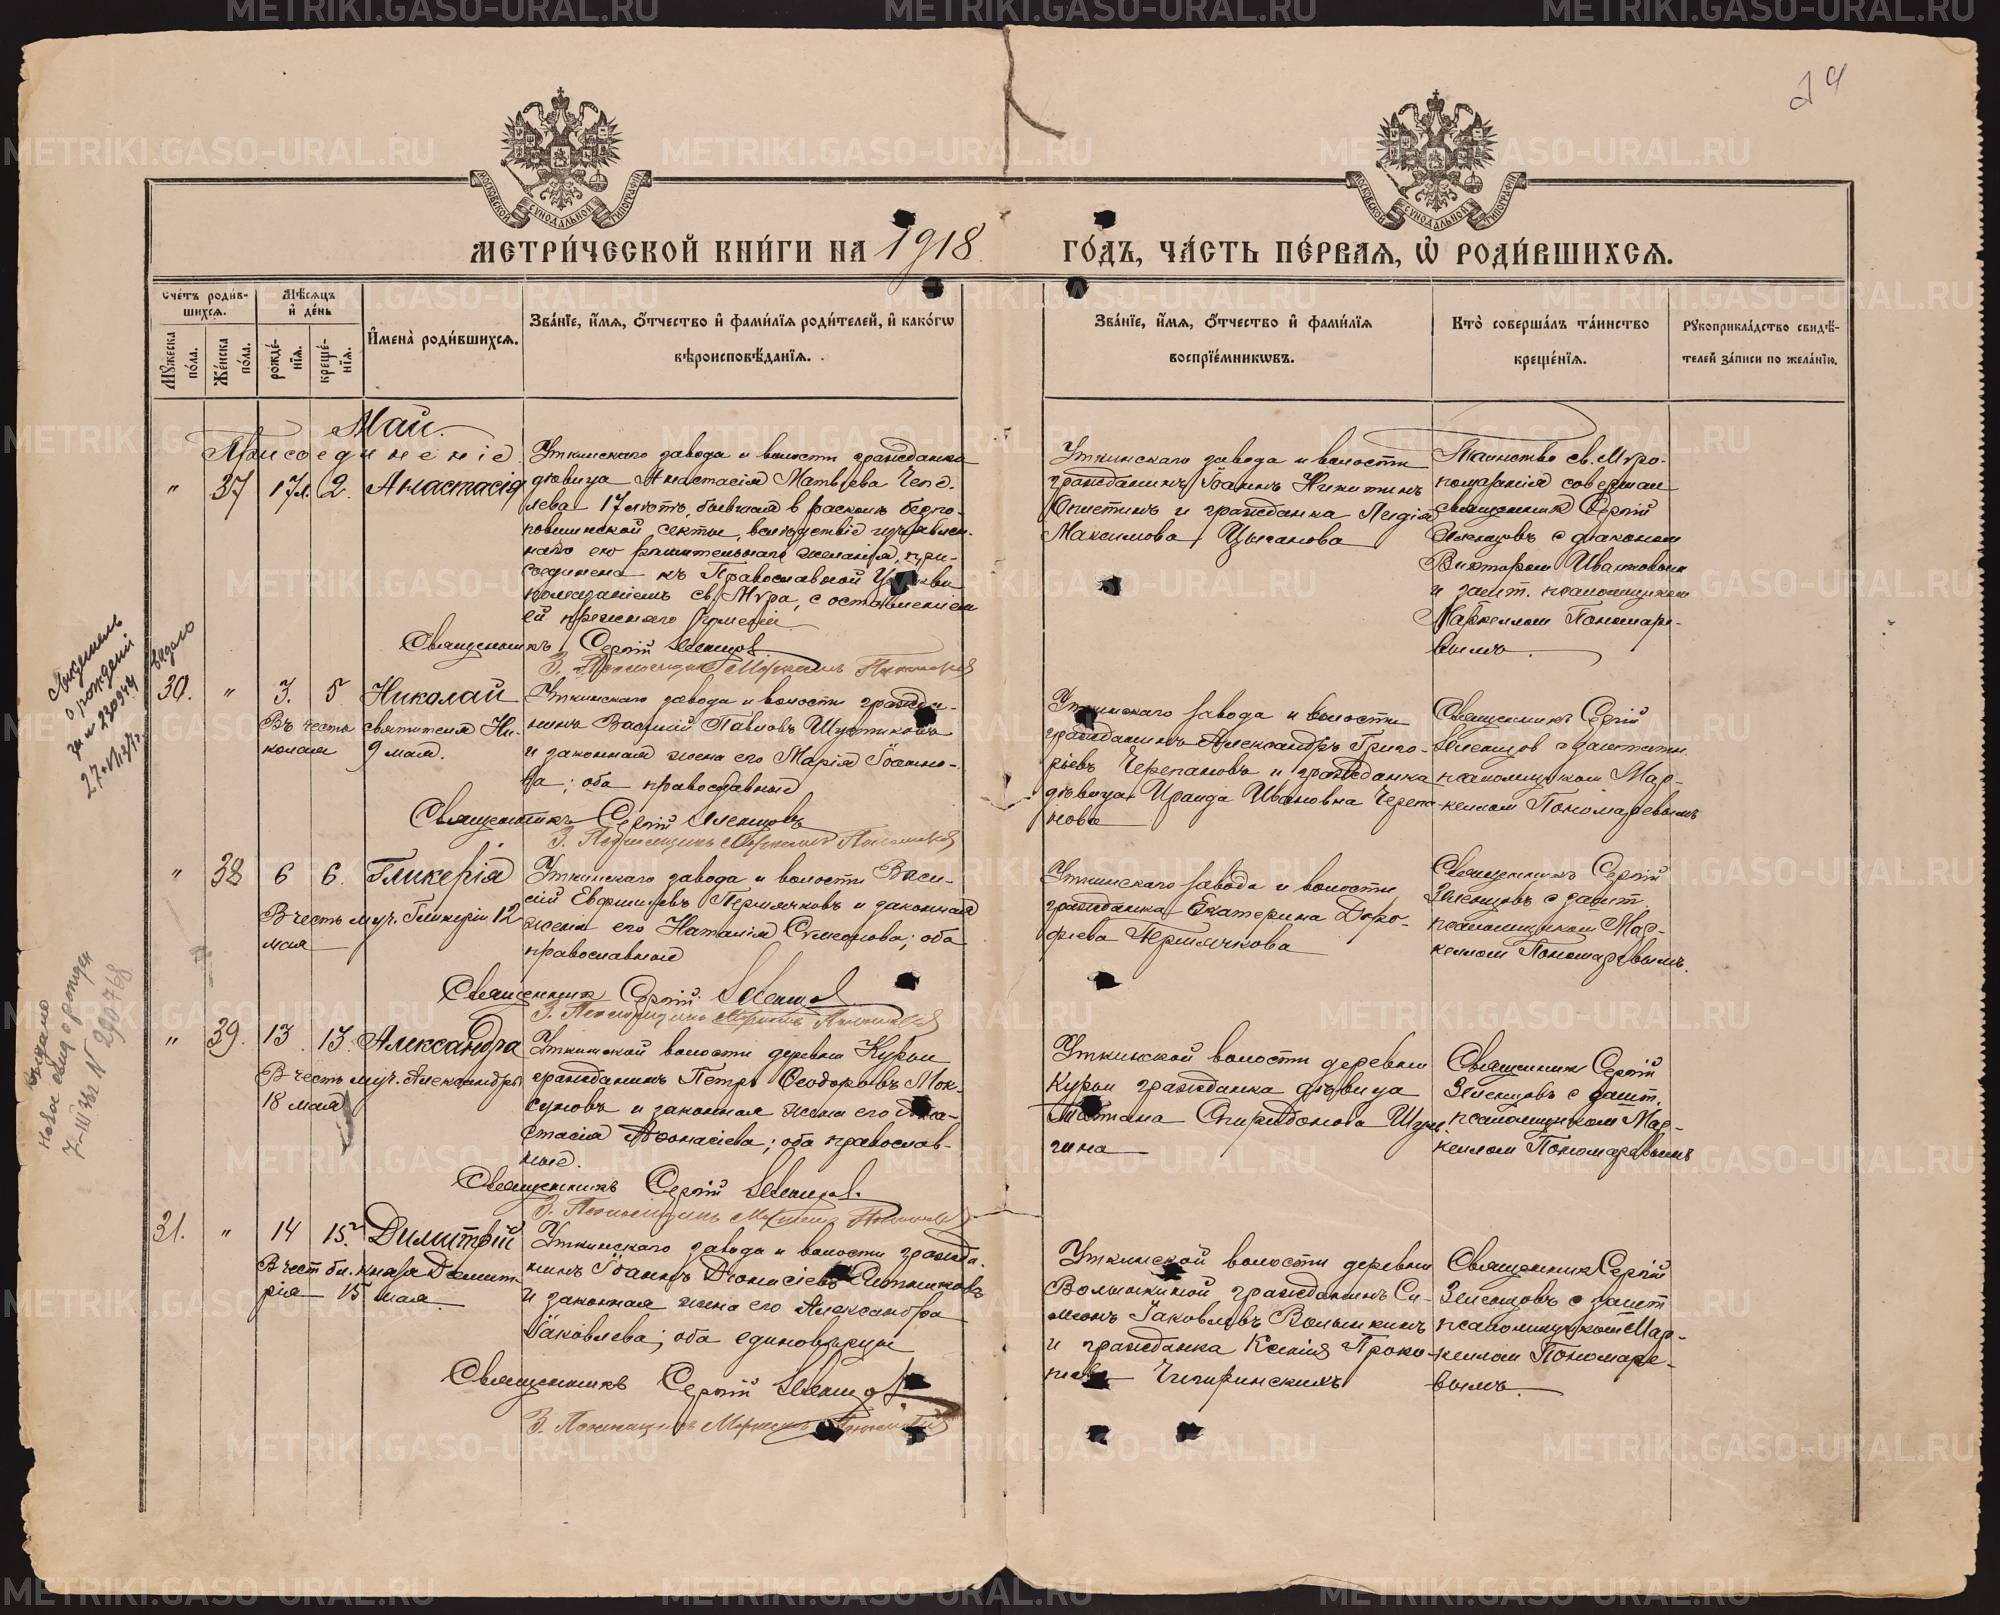 24
МЕТРИ́ЧЕСКОЙ КНИ́ГИ НА 1918 ГО́ДЪ, ЧА́СТЬ ПЕ́РВАЯ, Ѡ҆ РОДИ́ВШИХСЯ.
МОСКОВСКОЙ СѴНОДАЛЬНОЙ ТИПОГРАФІИ
МОСКОВСКОЙ СѴНОДАЛЬНОЙ ТИПОГРАФІИ
Сче́тъ роди́вшихся.
Му́жеска по́ла.
Же́нска по́ла.
Мѣ́сяцъ и҆ де́нь
рожде́нїя.
креще́нїя.
И҆мена̀ роди́вшихся.
Зва́нїе, и҆́мя, ѻ҆́тчество и҆ фами́лїя роди́телей, и҆ како́гѡ
вѣроисповѣ́данїя.
Зва́нїе, и҆́мя, ѻ҆́тчество и҆ фами́лїя
воспрїе́мникѡвъ.
Кто̀ соверша́лъ та́инство
креще́нїя.
Рꙋкоприкла́дство свидѣ́-
телей за́писи по жела́нїю.
Май.
Присоединеніе
" 37 17 л. 2. Анастасія
Уткинскаго завода и волости гражданка
дѣвица Анастасія Матвѣева
лева 17 лѣтъ, бывшая в расколѣ безпо-
повщинской секты, вслѣдствіе изъявлен-
наго ею рѣшительнаго желанія, при-
соединена къ Православной Церкви
помазаніемъ св. Мѵра, с оставленіем
ей прежняго имени
Священникъ Сергій Зеленцов
З. Псаломщикъ Маркеллъ Пономарев
Уткинскаго завода и волости
гражданинъ Іоаннъ Никитинъ
и гражданка Лидія
Максимова Цыганова
Таинство св. Мѵро-
помазанія совершал
священник Сергій
Зеленцовъ с діаконом
Виктором
и зашт. псаломщиком
Маркеллом Пономаре-
вымъ.
30. " 3. 5. Николай
Въ честь святителя Ни-
колая 9 мая.
Уткинскаго завода и волости гражда-
нинъ Василій Павловъ
и законная жена его Марія Іоанно-
ва; оба православные
Священникъ Сергій Зеленцовъ
З. Псаломщикъ Маркеллъ Пономарев
Уткинскаго завода и волости
гражданинъ Александръ Григо-
рьевъ Черепановъ и гражданка
дѣвица Ираида Ивановна Черепа-
нова
Священникъ Сергій
Зеленцов с заштатн.
псаломщиком Мар-
келлом Пономаревымъ
" 38 6 6. Гликерія
В честь муч. Гликеріи 12
мая
Уткинскаго завода и волости Васи-
лій Евфимьевъ Пермячковъ и законная
жена его Наталія Сѵмеонова; оба
православные
Священник Сергій Зеленцов
З. Псаломщикъ Маркеллъ Пономарев
Уткинскаго завода и волости
гражданка Екатерина Доро-
феева Пермячкова
Священникъ Сергій
Зеленцовъ с зашт.
псаломщиком Мар-
келлом Пономаревымъ.
" 39. 13 13. Александра
В честь муч. Александры
18 мая
Уткинской волости деревни Курьи
гражданинъ Петръ Ѳеодоровъ Мок-
и законная жена его Ана-
стасія Аѳонасіева; оба православ-
ные.
Священникъ Сергій Зеленцов.
З. Псаломщикъ Маркеллъ Пономарев
Уткинской волости деревни
Курьи гражданка дѣвица
Татіана Спиридонова
гина
Священник Сергій
Зеленцовъ с зашт.
псаломщиком Мар-
келлом Пономаревымъ
31. " 14 15. Димитрій
В чест бл. князя Димит-
рія 15 мая.
Уткинскаго завода и волости гражда-
нинъ Іоаннъ Діонисіевъ Ситниковъ
и законная жена его Александра
Іаковлева; оба единовѣрцы
Священникъ Сергій Зеленцов
З. Псаломщикъ Маркеллъ Пономарев
Уткинской волости деревни
Волынкиной гражданинъ Си-
меонъ Іаковлевъ Волынкинъ
и гражданка Ксенія Проко-
піева
Священник Сергій
Зеленцовъ с зашт
псаломщиком Мар-
келлом Пономаре-
вымъ.
о рождений
выдано
Выдано
Новое свид о рожден
7-III 36г N 290768
METRIKI.GASO-URAL.RU